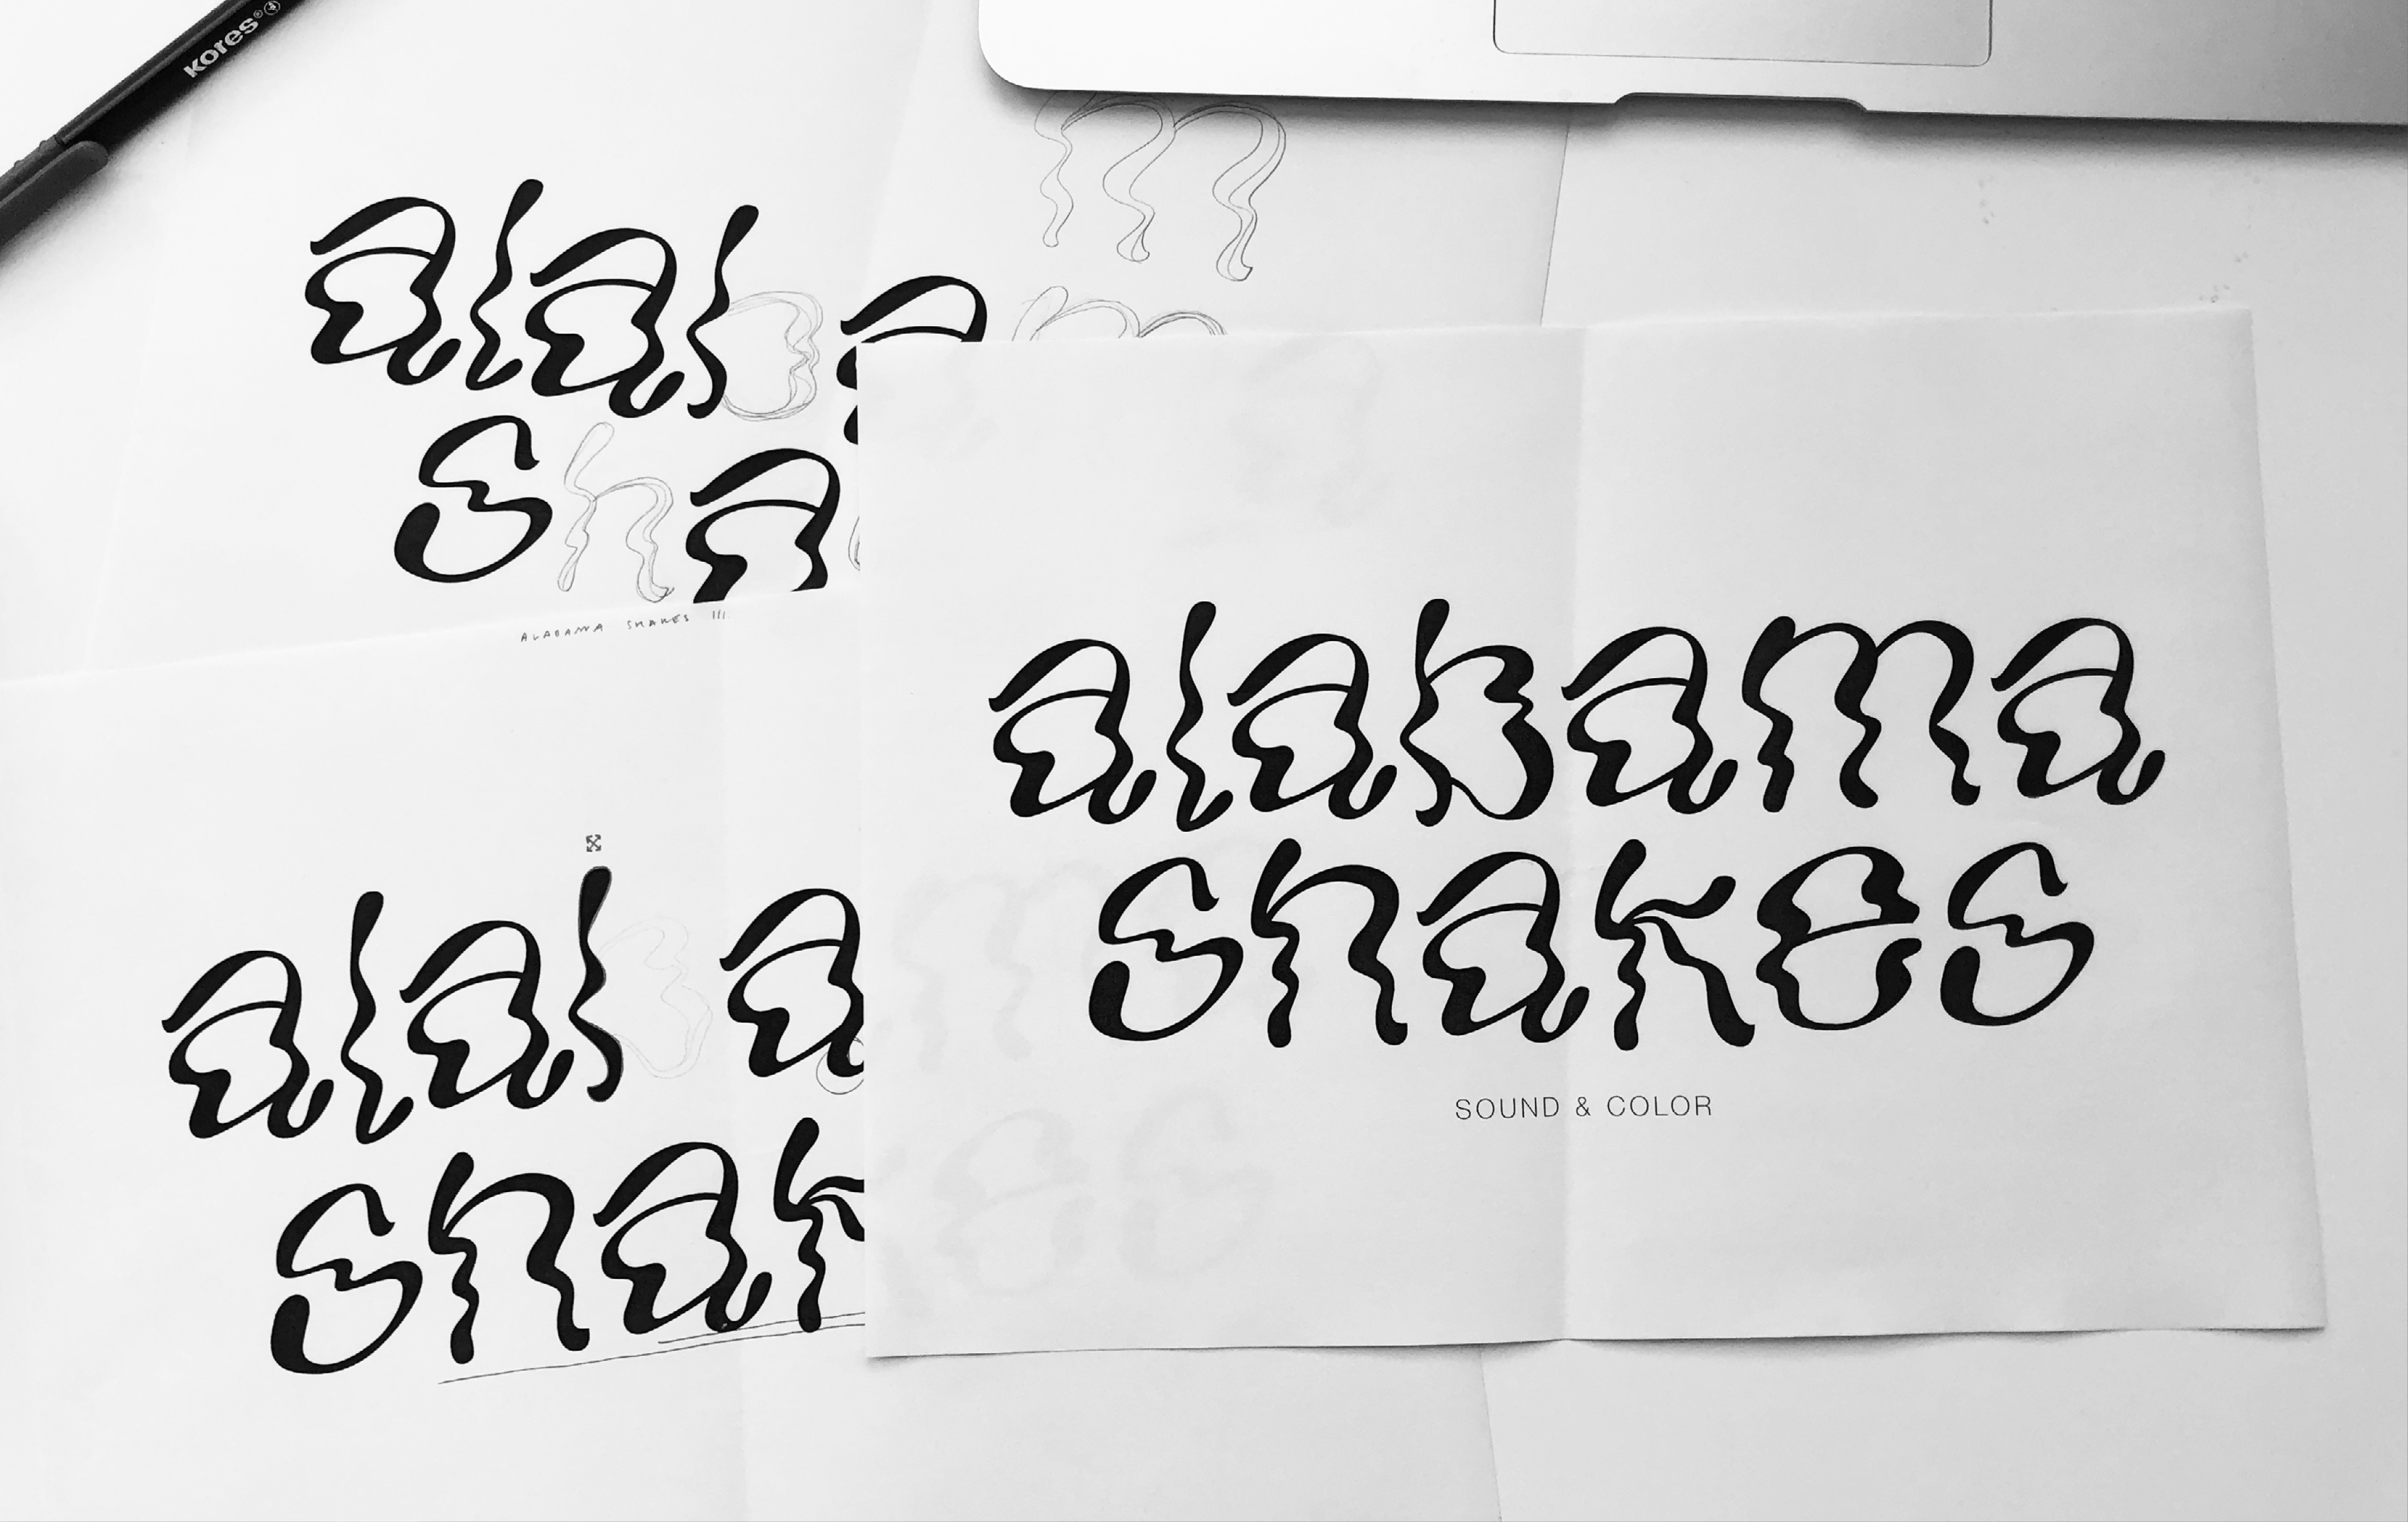 Kores
m
m
alab a
sha
ALABAMA SHAKES III.
alab a
shak
alabama
shakes
SOUND & COLOR